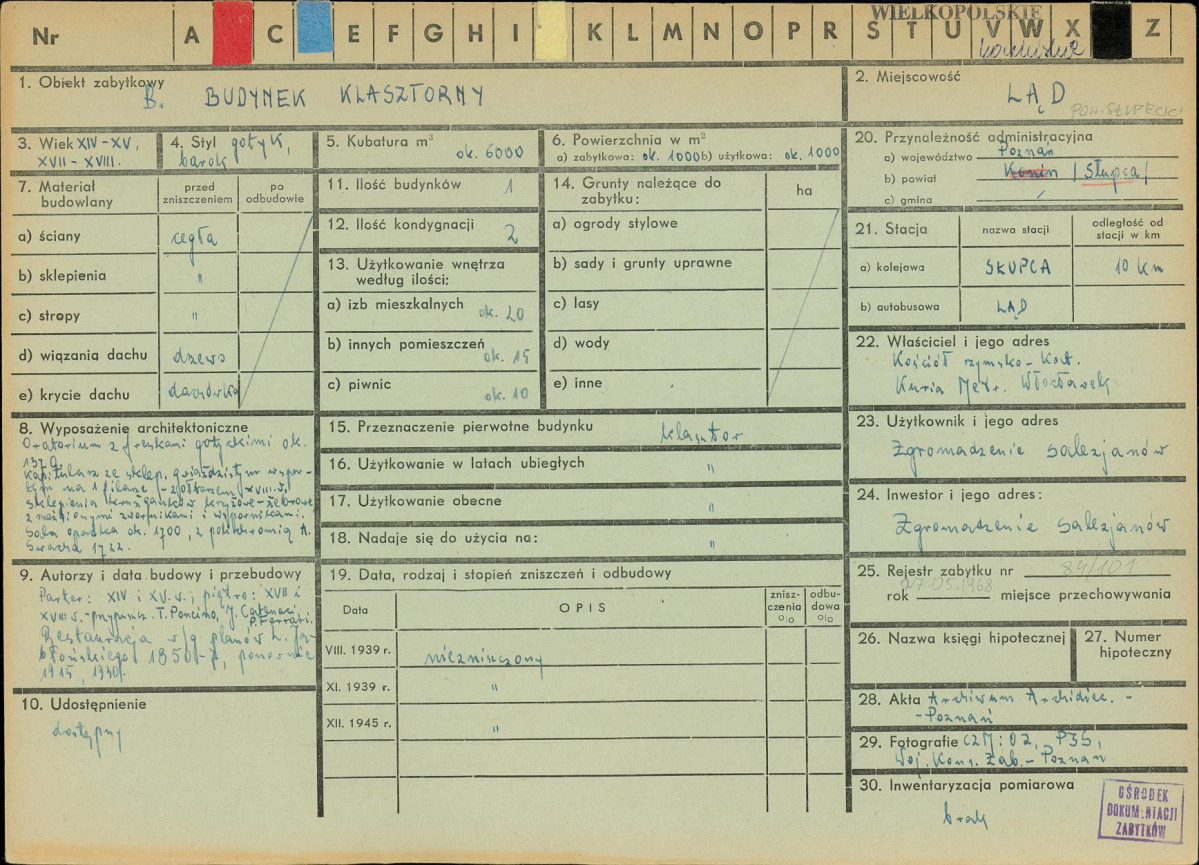 WIELKOPOLSKIE
Nr A C E F G H I K L M N O P R S T U V W X Z
1. Obiekt zabytkowy
B. BUDYNEK KLASZTORNY
2. Miejscowość
LĄD
POW. SŁUPECKI
3. Wiek XIV-XV,
XVII - XVIII.
4. Styl gotyk,
barok
5. Kubatura m³
ok. 6000
6. Powierzchnia w m²
a) zabytkowa: ok. 1000 b) użytkowa: ok. 1000
7. Materiał budowlany
przed zniszczeniem
po odbudowie
a) ściany cegła
b) sklepienia "
c) stropy "
d) wiązania dachu drzewo
e) krycie dachu dachówka
8. Wyposażenie architektoniczne
Oratorium z freskami gotyckimi ok.
1370.
Kapitularz ze sklep. gwiaździstym wspar-
tym na 1 filarze - z ołtarzem XVIII w.
Sklepienia krużganków krzyżowo-żebrowe
z zwornikami i wspornikami.
Sala opacka ok. 1700, z polichromią A.
Swacha 1722.
9. Autorzy i data budowy i przebudowy
Parter: XIV i XV w., piętro: XVII i
XVIII w. - przypuszcz. T. Poncino, J. Catenaci,
P. Ferrari.
Restauracja w/g planów L. Ja-
błońskiego 1850-1, ponownie
1915, 1930.
10. Udostępnienie
dostępny
11. Ilość budynków 1
12. Ilość kondygnacji 2
13. Użytkowanie wnętrza
według ilości:
a) izb mieszkalnych ok. 20
b) innych pomieszczeń ok. 15
c) piwnic ok. 10
14. Grunty należące do
zabytku:
ha
a) ogrody stylowe
b) sady i grunty uprawne
c) lasy
d) wody
e) inne
15. Przeznaczenie pierwotne budynku klasztor
16. Użytkowanie w latach ubiegłych "
17. Użytkowanie obecne "
18. Nadaje się do użycia na: "
19. Data, rodzaj i stopień zniszczeń i odbudowy
Data
OPIS
znisz-
czenia
o|o
odbu-
dowa
o|o
VIII. 1939 r. niezniszczony
XI. 1939 r. "
XII. 1945 r. "
20. Przynależność administracyjna
a) województwo Poznań
b) powiat Konin /Słupca/
c) gmina
21. Stacja
nazwa stacji
odległość od
stacji w km
a) kolejowa SŁUPCA 10 km
b) autobusowa LĄD
22. Właściciel i jego adres
Kościół rzymsko-kat.
Kuria Metr. Włocławek
23. Użytkownik i jego adres
Zgromadzenie salezjanów
24. Inwestor i jego adres:
Zgromadzenie salezjanów
25. Rejestr zabytku nr 84/101
07.05.1968
rok miejsce przechowywania
26. Nazwa księgi hipotecznej
27. Numer
hipoteczny
28. Akta Archiwum Archidiec. -
- Poznań
29. Fotografie CZM: OZ, PIS,
Woj. Kons. Zab. - Poznań
30. Inwentaryzacja pomiarowa
brak
OŚRODEK
DOKUMENTACJI
ZABYTKÓW